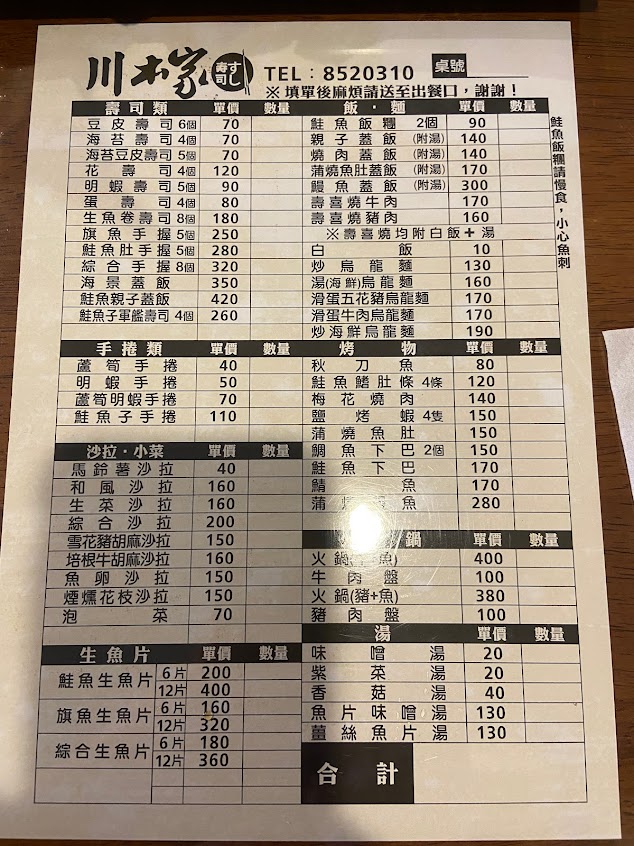 川本家 寿司 すし
TEL：8520310 桌號
※ 填單後麻煩請送至出餐口，謝謝！
壽司類 單價 數量
豆皮壽司 6個 70
海苔壽司 4個 70
海苔豆皮壽司 5個 70
花壽司 4個 120
明蝦壽司 5個 90
蛋壽司 4個 80
生魚卷壽司 8個 180
旗魚手握 5個 250
鮭魚肚手握 5個 280
綜合手握 8個 320
海景蓋飯 350
鮭魚親子蓋飯 420
鮭魚子軍艦壽司 4個 260
手捲類 單價 數量
蘆筍手捲 40
明蝦手捲 50
蘆筍明蝦手捲 70
鮭魚子手捲 110
沙拉・小菜 單價 數量
馬鈴薯沙拉 40
和風沙拉 160
生菜沙拉 160
綜合沙拉 200
雪花豬胡麻沙拉 150
培根牛胡麻沙拉 160
魚卵沙拉 150
煙燻花枝沙拉 150
泡菜 70
生魚片 單價 數量
鮭魚生魚片 6片 200
12片 400
旗魚生魚片 6片 160
12片 320
綜合生魚片 6片 180
12片 360
飯・麵 單價 數量
鮭魚飯糰 2個 90
親子蓋飯 (附湯) 140
燒肉蓋飯 (附湯) 140
蒲燒魚肚蓋飯 (附湯) 170
鰻魚蓋飯 (附湯) 300
壽喜燒牛肉 170
壽喜燒豬肉 160
※ 壽喜燒均附白飯＋湯
白飯 10
炒烏龍麵 130
湯(海鮮)烏龍麵 160
滑蛋五花豬烏龍麵 170
滑蛋牛肉烏龍麵 170
炒海鮮烏龍麵 190
鮭魚飯糰請慢食，小心魚刺
烤物 單價 數量
秋刀魚 80
鮭魚鰭肚條 4條 120
梅花燒肉 140
鹽烤蝦 4隻 150
蒲燒魚肚 150
鯛魚下巴 2個 150
鮭魚下巴 170
鯖魚 170
蒲燒 魚 280
鍋 單價 數量
火鍋( 魚) 400
牛肉盤 100
火鍋(豬+魚) 380
豬肉盤 100
湯 單價 數量
味噌湯 20
紫菜湯 20
香菇湯 40
魚片味噌湯 130
薑絲魚片湯 130
合計